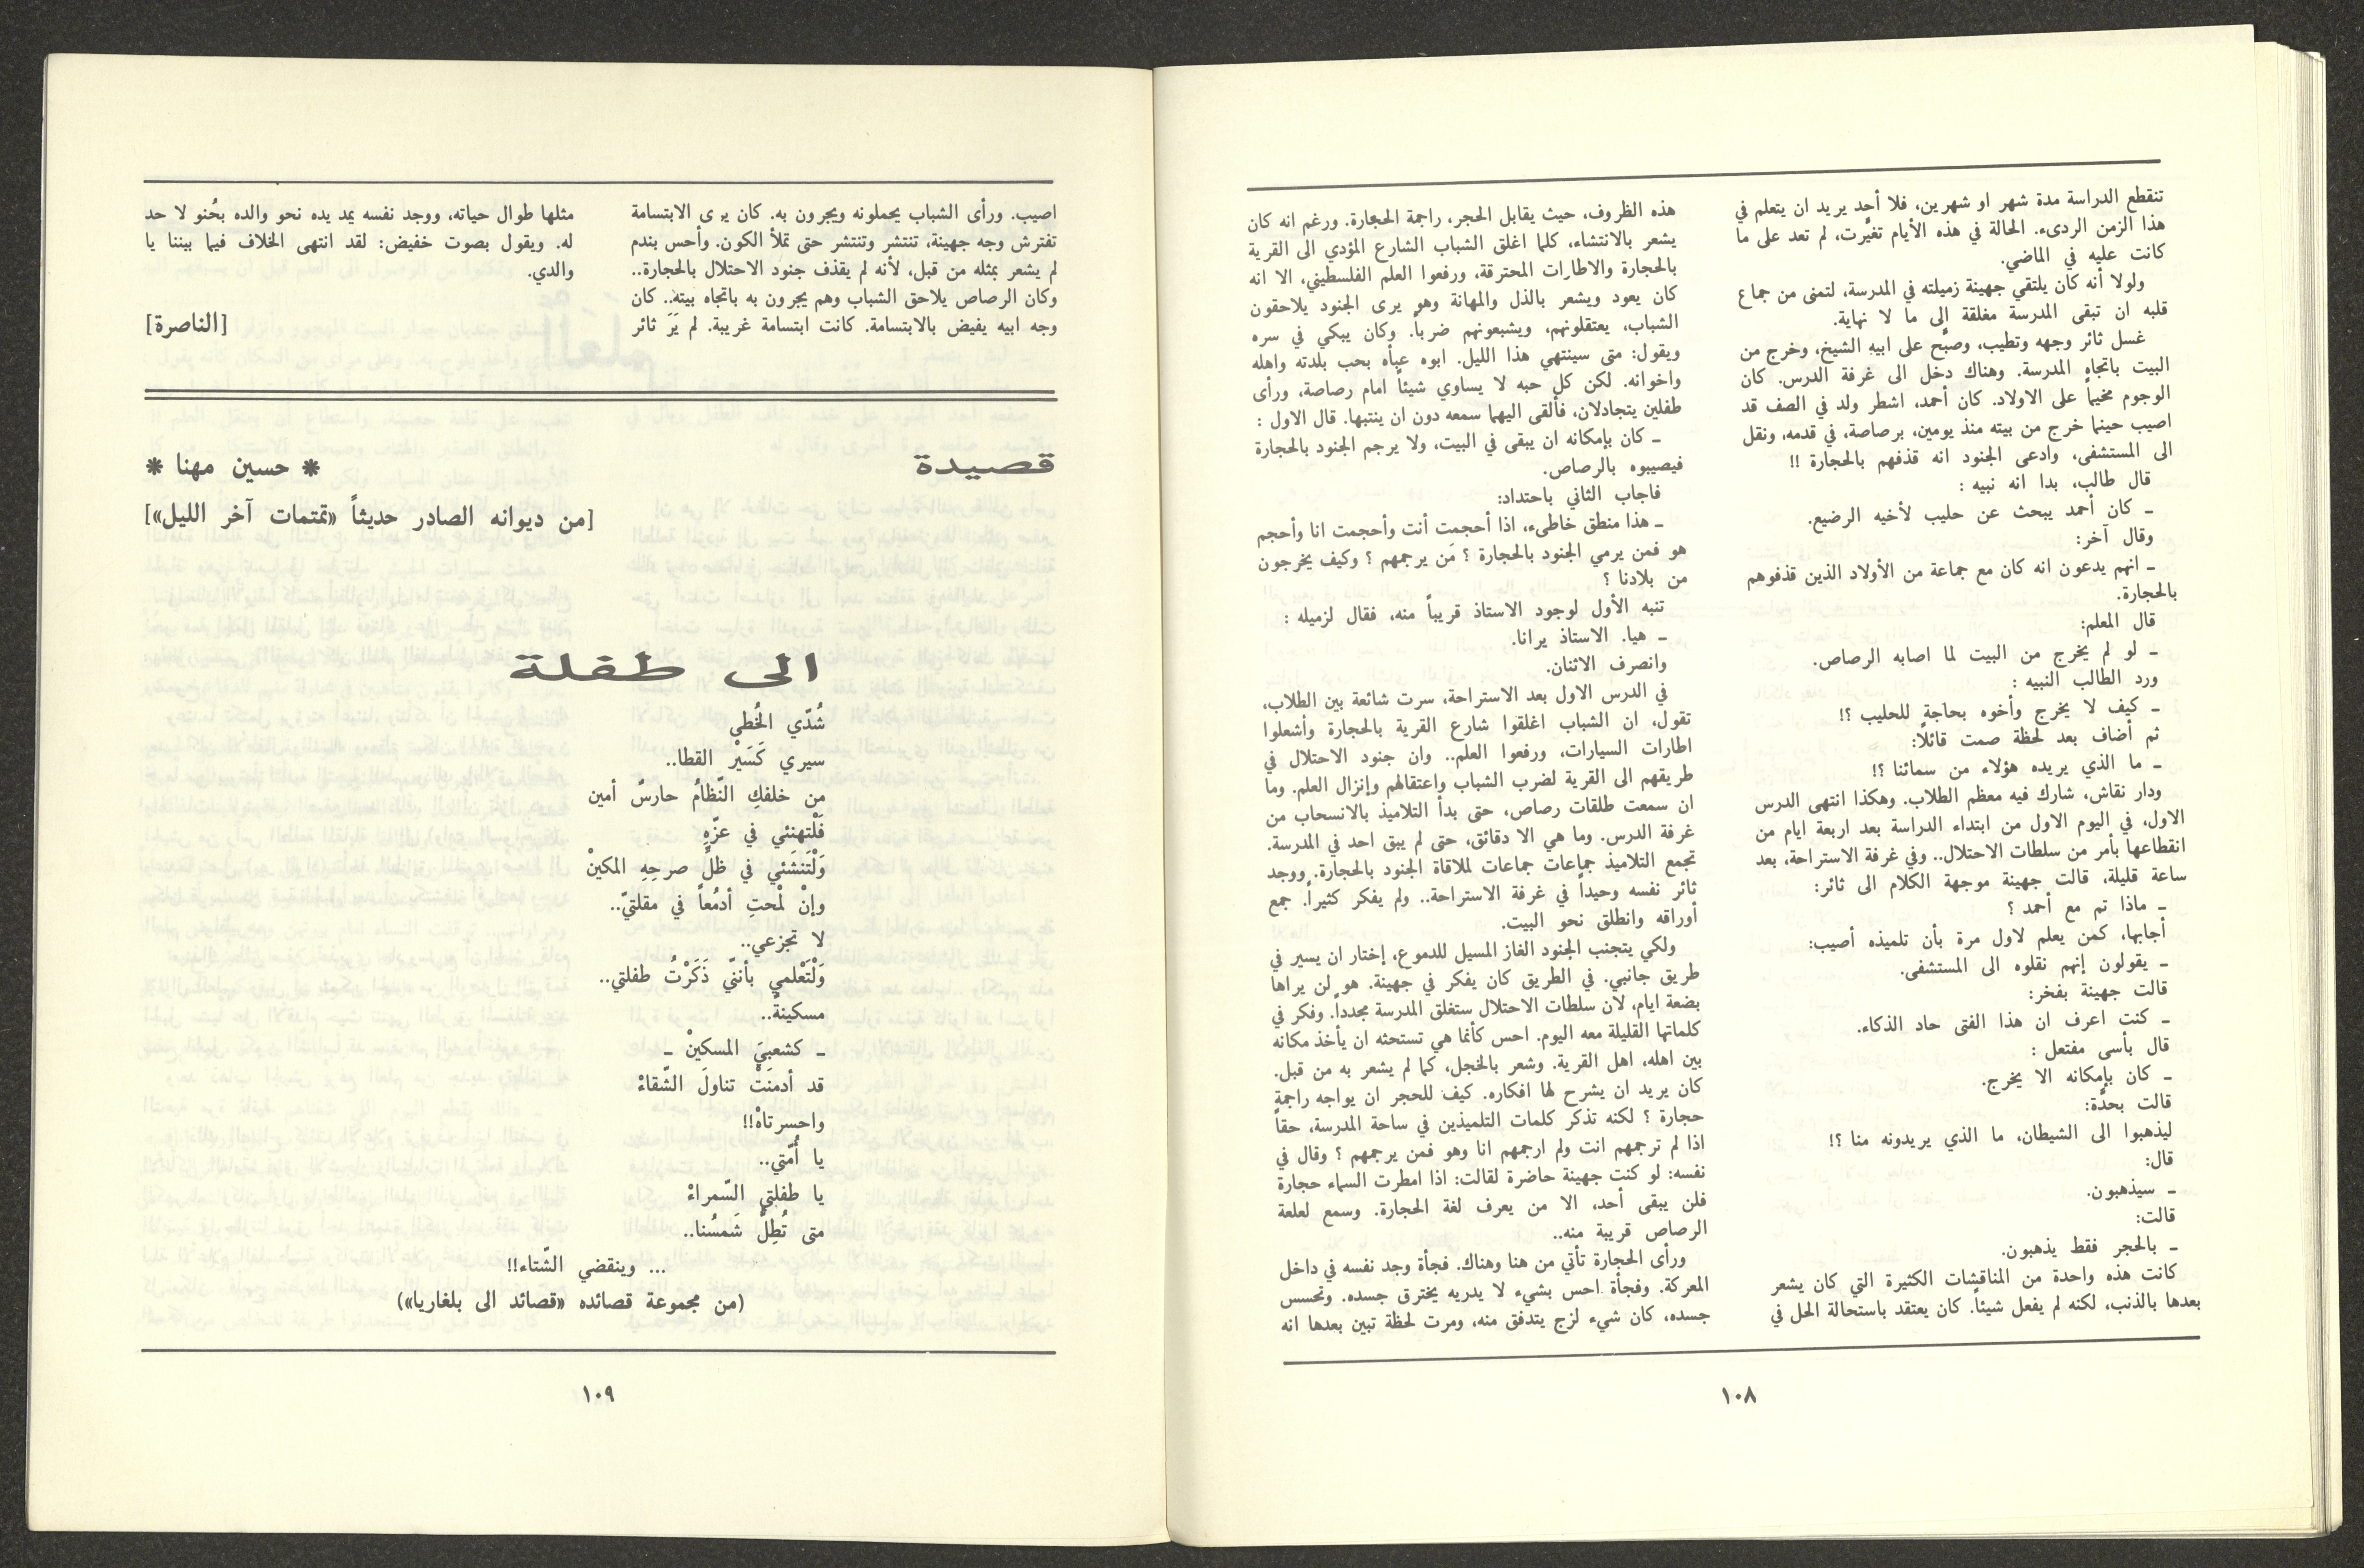 تنقطع الدراسة مدة شهر او شهرين، فلا أحد يريد ان يتعلم في
هذا الزمن الردىء. الحالة في هذه الأيام تغيَّرت، لم تعد على ما
كانت عليه في الماضي.
ولولا أنه كان يلتقي جهينة زميلته في المدرسة، لتمنى من جماع
قلبه ان تبقى المدرسة مغلقة إلى ما لا نهاية.
غسل ثائر وجهه وتطيب، وصبَّح على ابيه الشيخ، وخرج من
البيت باتجاه المدرسة. وهناك دخل الى غرفة الدرس. كان
الوجوم مخيماً على الاولاد. كان أحمد، اشطر ولد في الصف قد
اصيب حينما خرج من بيته منذ يومين، برصاصة، في قدمه، ونقل
الى المستشفى، وادعى الجنود انه قذفهم بالحجارة !!
قال طالب، بدا انه نبيه :
ـ كان أحمد يبحث عن حليب لأخيه الرضيع.
وقال آخر:
ـ انهم يدعون انه كان مع جماعة من الأولاد الذين قذفوهم
بالحجارة.
قال المعلم:
ـ لو لم يخرج من البيت لما اصابه الرصاص.
ورد الطالب النبيه :
ـ كيف لا يخرج وأخوه بحاجة للحليب ؟!
ثم أضاف بعد لحظة صمت قائلاً:
ـ ما الذي يريده هؤلاء من سمائنا ؟!
ودار نقاش، شارك فيه معظم الطلاب. وهكذا انتهى الدرس
الاول، في اليوم الاول من ابتداء الدراسة بعد اربعة ايام من
انقطاعها بأمر من سلطات الاحتلال.. وفي غرفة الاستراحة، بعد
ساعة قليلة، قالت جهينة موجهة الكلام الى ثائر:
ـ ماذا تم مع أحمد ؟
أجابها، كمن يعلم لاول مرة بأن تلميذه أصيب:
ـ يقولون إنهم نقلوه الى المستشفى.
قالت جهينة بفخر:
ـ كنت اعرف ان هذا الفتى حاد الذكاء.
قال بأسى مفتعل :
ـ كان بإمكانه الا يخرج.
قالت بحدَّة:
ليذهبوا الى الشيطان، ما الذي يريدونه منا ؟!
قال:
ـ سيذهبون.
قالت:
ـ بالحجر فقط يذهبون.
كانت هذه واحدة من المناقشات الكثيرة التي كان يشعر
بعدها بالذنب، لكنه لم يفعل شيئاً. كان يعتقد باستحالة الحل في
هذه الظروف، حيث يقابل الحجر، راجمة الحجارة. ورغم انه كان
يشعر بالانتشاء، كلما اغلق الشباب الشارع المؤدي الى القرية
بالحجارة والاطارات المحترقة، ورفعوا العلم الفلسطيني، الا انه
كان يعود ويشعر بالذل والمهانة وهو يرى الجنود يلاحقون
الشباب، يعتقلونهم، ويشبعونهم ضرباً. وكان يبكي في سره
ويقول: متى سينتهي هذا الليل. ابوه عبأه بحب بلدته واهله
واخوانه. لكن كل حبه لا يساوي شيئاً امام رصاصة، ورأى
طفلين يتجادلان، فألقى اليهما سمعه دون ان ينتبها. قال الاول :
ـ كان بإمكانه ان يبقى في البيت، ولا يرجم الجنود بالحجارة
فيصيبوه بالرصاص.
فاجاب الثاني باحتداد:
ـ هذا منطق خاطىء، اذا أحجمت أنت وأحجمت انا وأحجم
هو فمن يرمي الجنود بالحجارة ؟ مَن يرجمهم ؟ وكيف يخرجون
من بلادنا ؟
تنبه الأول لوجود الاستاذ قريباً منه، فقال لزميله :
ـ هيا. الاستاذ يرانا.
وانصرف الاثنان.
في الدرس الاول بعد الاستراحة، سرت شائعة بين الطلاب،
تقول، ان الشباب اغلقوا شارع القرية بالحجارة وأشعلوا
اطارات السيارات، ورفعوا العلم.. وان جنود الاحتلال في
طريقهم الى القرية لضرب الشباب واعتقالهم وإنزال العلم. وما
ان سمعت طلقات رصاص، حتى بدأ التلاميذ بالانسحاب من
غرفة الدرس. وما هي الا دقائق، حتى لم يبق احد في المدرسة.
تجمع التلاميذ جماعات جماعات لملاقاة الجنود بالحجارة. ووجد
ثائر نفسه وحيداً في غرفة الاستراحة.. ولم يفكر كثيراً. جمع
أوراقه وانطلق نحو البيت.
ولكي يتجنب الجنود الغاز المسيل للدموع، إختار ان يسير في
طريق جانبي. في الطريق كان يفكر في جهينة. هو لن يراها
بضعة ايام، لان سلطات الاحتلال ستغلق المدرسة مجدداً. وفكر في
كلماتها القليلة معه اليوم. احس كأنما هي تستحثه ان يأخذ مكانه
بين اهله، اهل القرية. وشعر بالخجل، كما لم يشعر به من قبل.
كان يريد ان يشرح لها افكاره. كيف للحجر ان يواجه راجمة
حجارة ؟ لكنه تذكر كلمات التلميذين في ساحة المدرسة، حقاً
اذا لم ترجمهم انت ولم ارجمهم انا وهو فمن يرجمهم ؟ وقال في
نفسه: لو كنت جهينة حاضرة لقالت: اذا امطرت السماء حجارة
فلن يبقى أحد، الا من يعرف لغة الحجارة. وسمع لعلعة
الرصاص قريبة منه..
ورأى الحجارة تأتي من هنا وهناك. فجأة وجد نفسه في داخل
المعركة. وفجأة احس بشيء لا يدريه يخترق جسده. وتحسس
جسده، كان شيء لزج يتدفق منه، ومرت لحظة تبين بعدها انه
١٠٨
اصيب. ورأى الشباب يحملونه ويجرون به. كان يرى الابتسامة
تفترش وجه جهينة، تنتشر وتنتشر حتى تملأ الكون. وأحس بندم
لم يشعر بمثله من قبل، لأنه لم يقذف جنود الاحتلال بالحجارة..
وكان الرصاص يلاحق الشباب وهم يجرون به باتجاه بيته.. كان
وجه ابيه يفيض بالابتسامة. كانت ابتسامة غريبة. لم يَرَ ثائر
مثلها طوال حياته، ووجد نفسه يمد يده نحو والده بحُنو لا حد
له. ويقول بصوت خفيض: لقد انتهى الخلاف فيما بيننا يا
والدي.
[الناصرة]
قصيدة
* حسين مهنا *
[من ديوانه الصادر حديثاً «تمتمات آخر الليل»]
الى طفلة
شُدّي الخُطى
سيري كَسَيْرْ القطا..
من خلفكِ النّظامُ حارسٌ أمين
فَلْتهنئي في عزّهِ
وَلْتَنشَئي في ظلِّ صرحِهِ المكينْ
وإنْ لمْحتِ أدمُعاً في مقلتيّ..
لا تجزعي..
وَلْتَعْلمي بأننّي ذَكَرْتُ طفلتي..
مسكينةً..
ـ كشعبيَ المسكينْ ـ
قد أدمنَتْ تناولَ الشّقاءْ
واحسرتاهْ!!
يا أُمّتي..
يا طفلتي السّمراءْ
متى تُطِلُّ شَمسُنا..
... وينقضي الشّتاء!!
(من مجموعة قصائده «قصائد الى بلغاريا»)
١٠٩